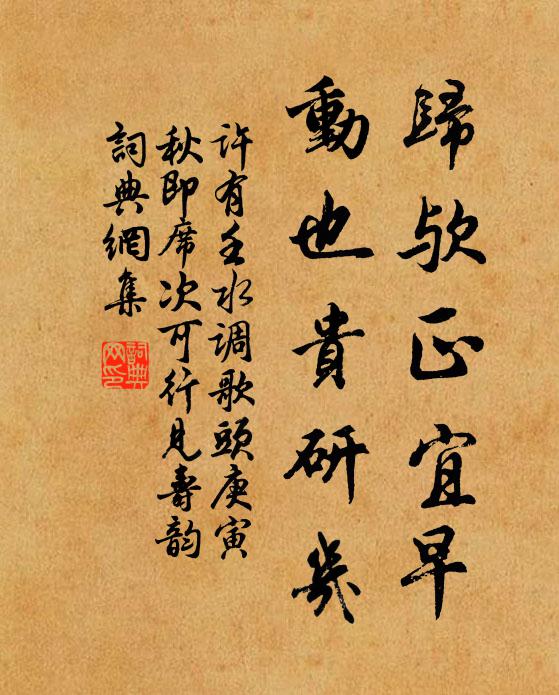 歸欤正宜早
動也貴研幾
許有壬水调歌頭庚寅
秋即席次可行見壽韵
詞典網集
詞典網印